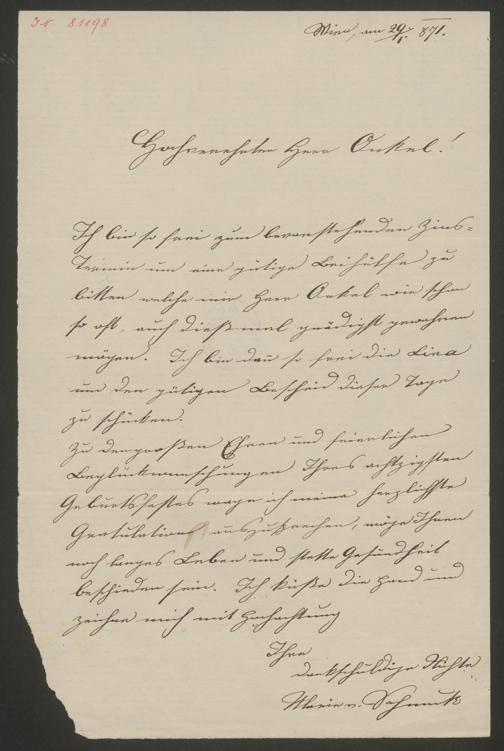 I. N. 81198
Wien, am 29/1. 871.
Hochverehrter Herr Onkel!
Ich bin so frei zum bevorstehenden Zins-
Termin um eine gütige Beihülfe zu
bitten welche mir Herr Onkel wie schon
so oft, auch dießmal gnädigst gewähren
mögen. Ich bin dan so frei die Lina
um den gütigen Bescheid dieser Tage
zu schicken.
Zu den großen Ehren und feierlichen
Beglückwünschungen Ihres achtzigsten
Geburtsfestes wage ich meine herzlichste
Gratulation auszusprechen, möge Ihnen
noch langes Leben und stette Gesundheit
beschieden sein. Ich küße die Hand und
zeichne mich mit Hochachtung
Ihre
dankschuldige Nichte
Marie v.